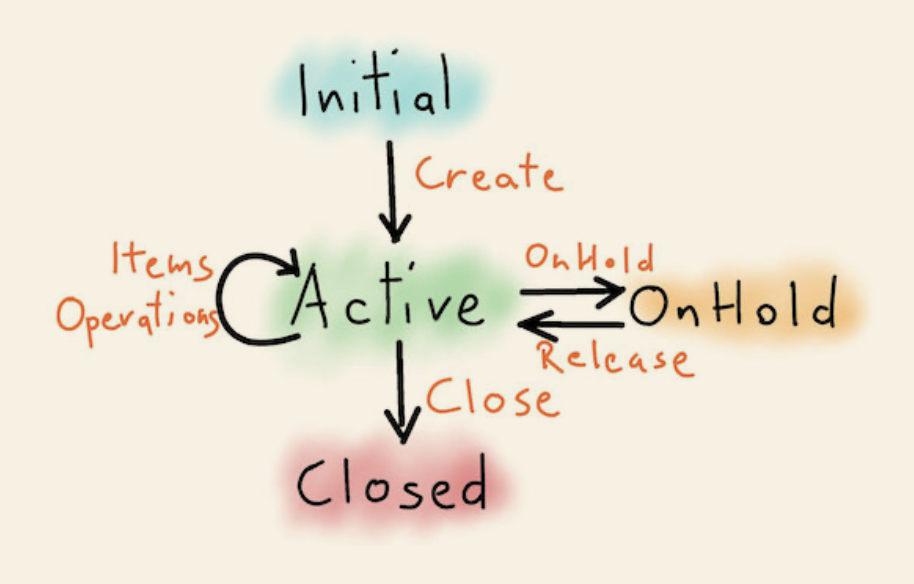 Initial
Create
Items
Operations
Active
OnHold
OnHold
Release
Close
Closed